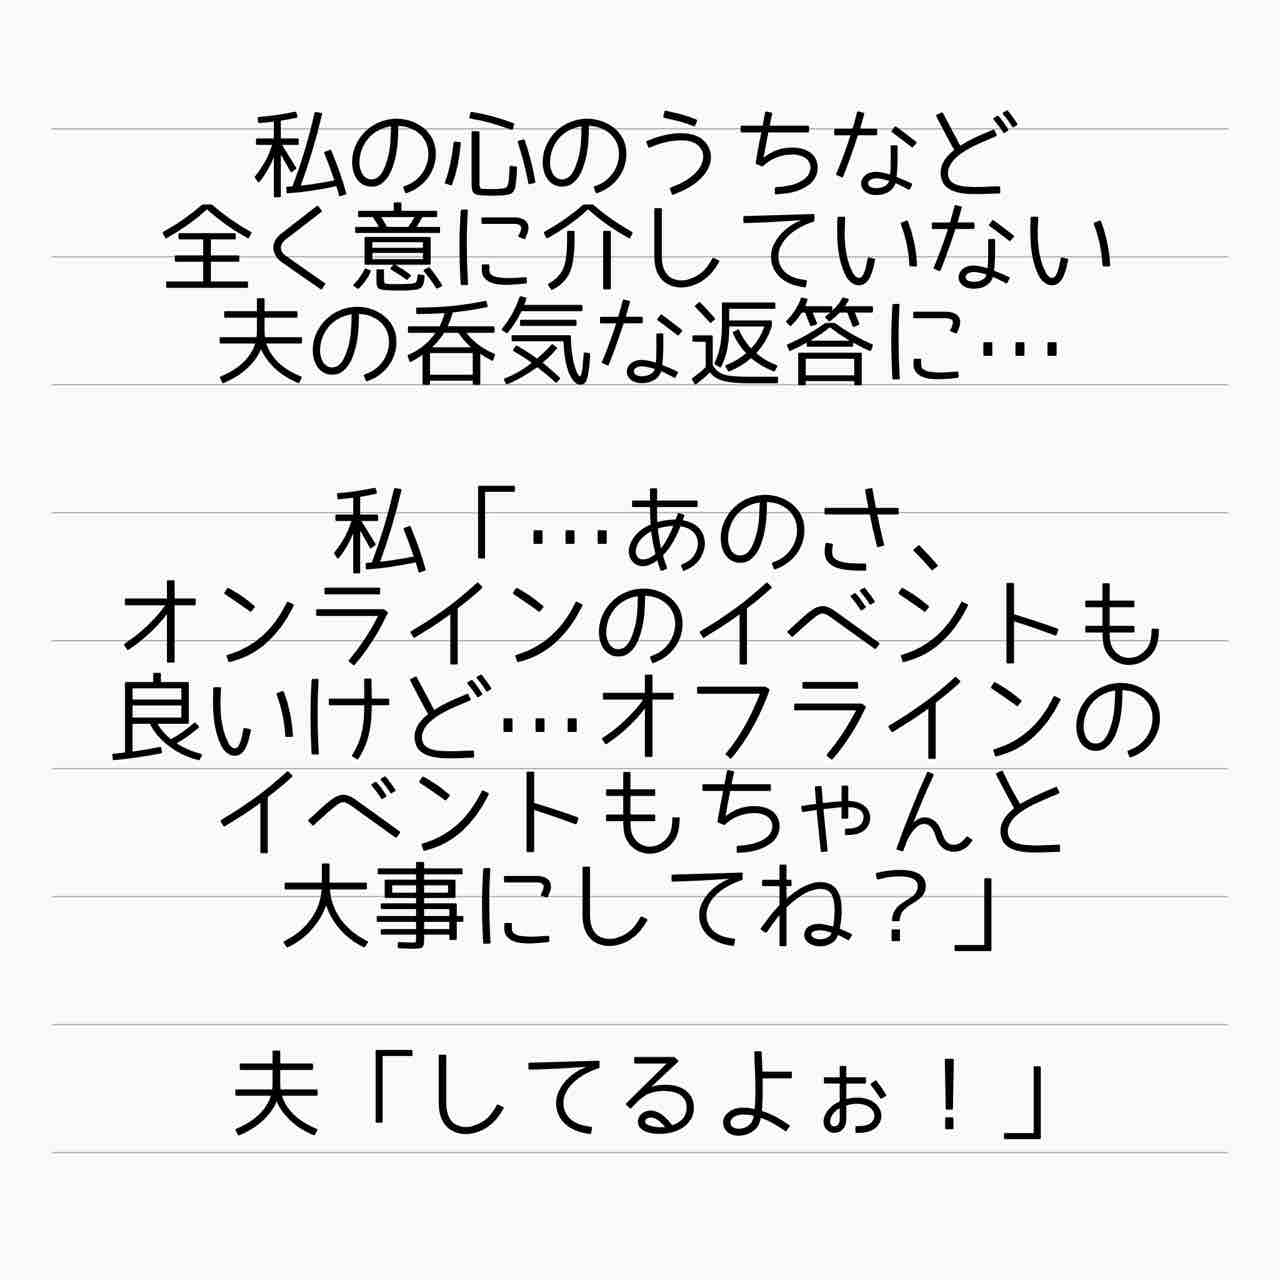 私の心のうちなど
全く意に介していない
夫の呑気な返答に…
私「…あのさ、
オンラインのイベントも
良いけど…オフラインの
イベントもちゃんと
大事にしてね？」
夫「してるよぉ！」